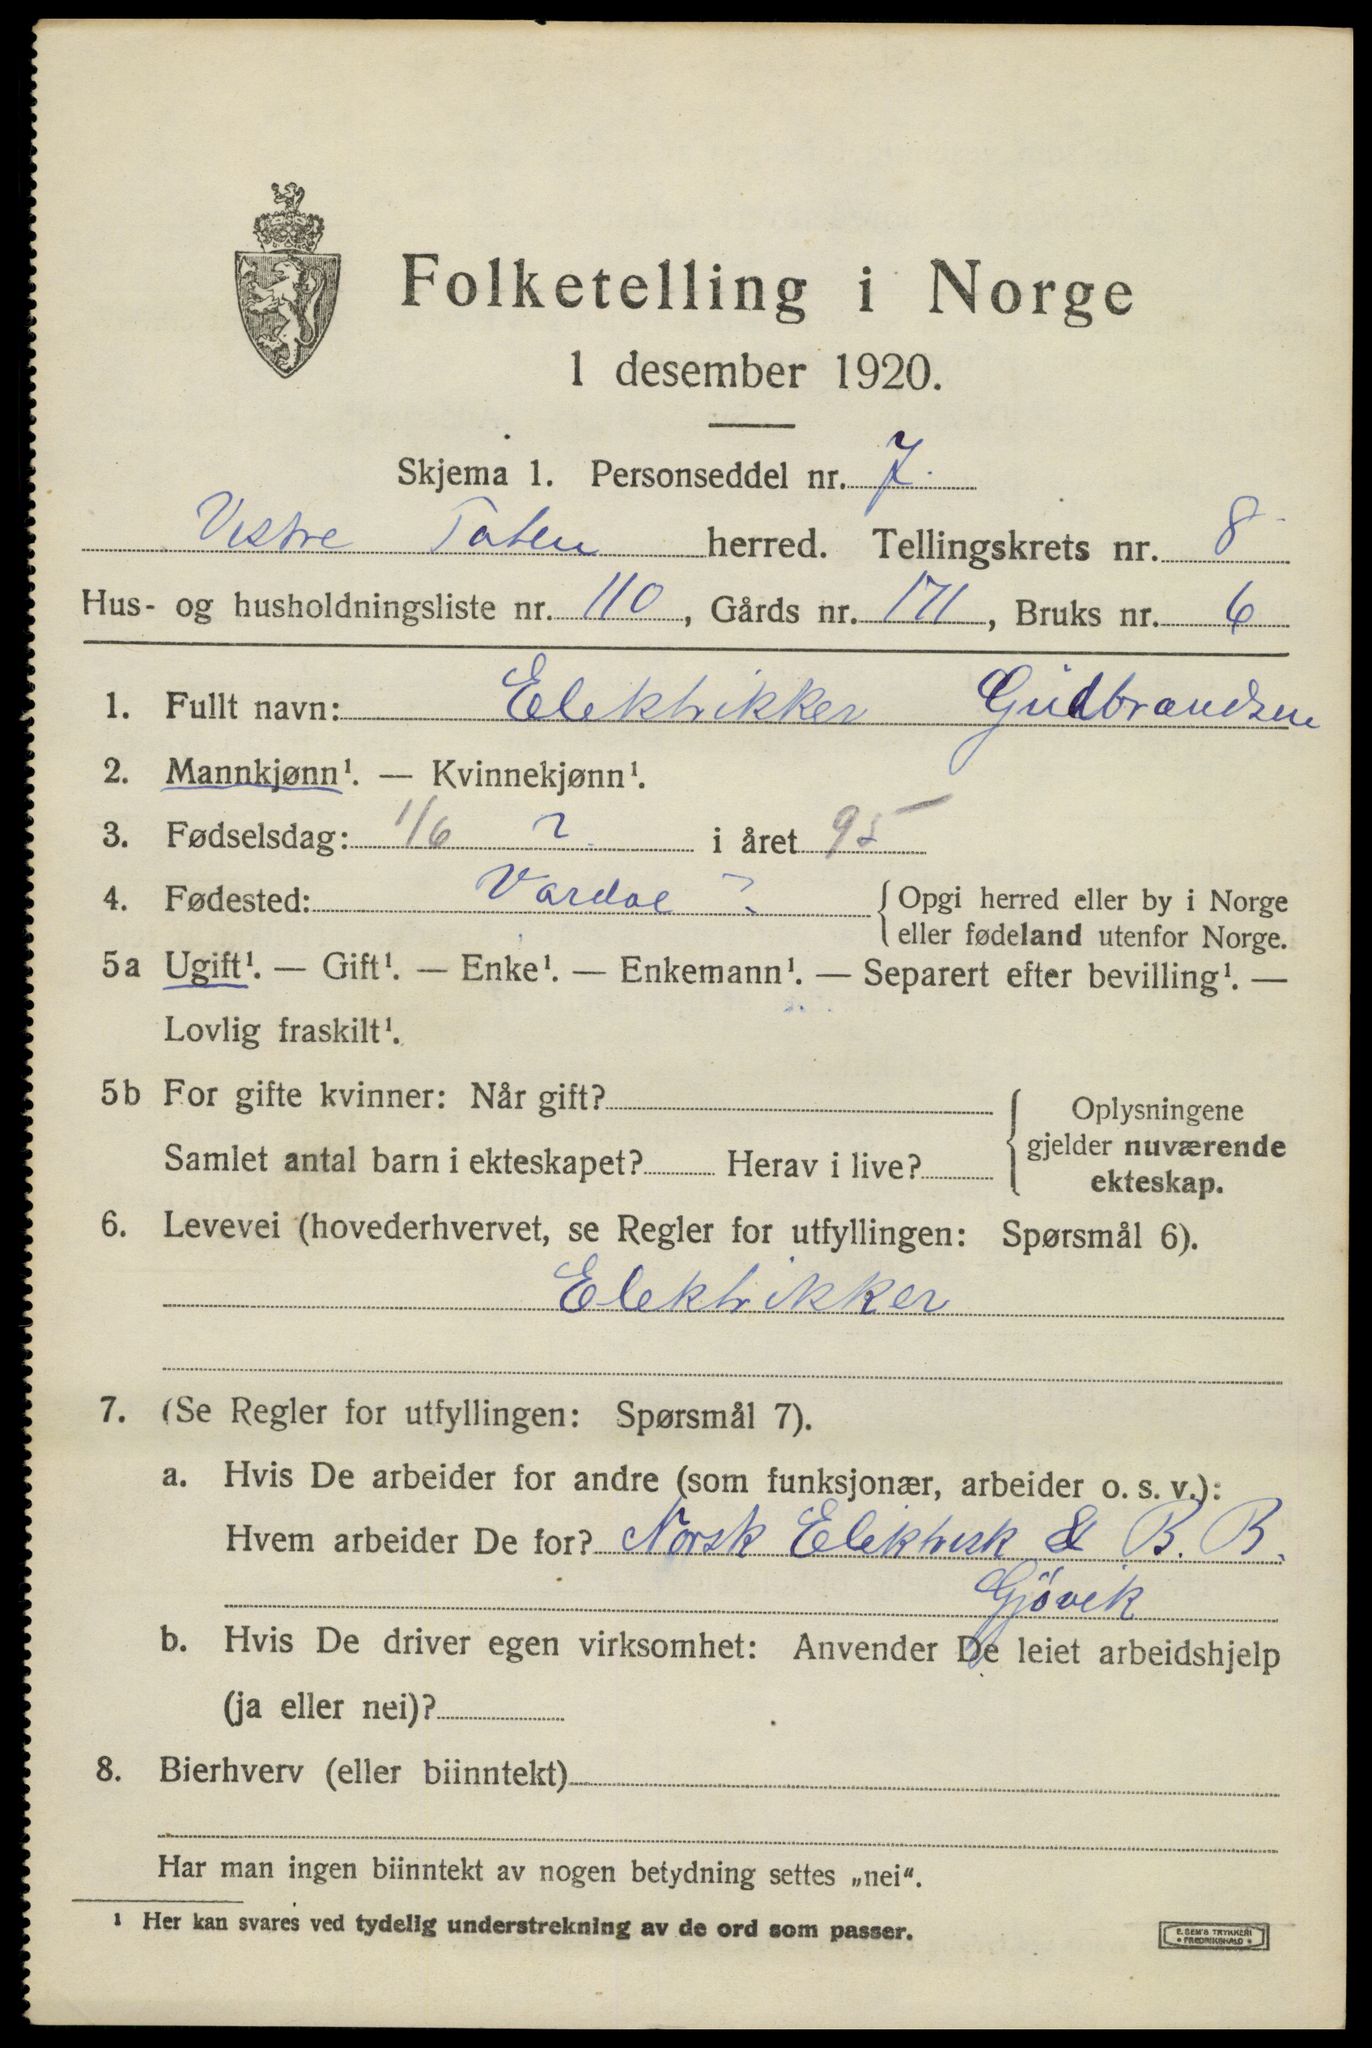 Folketelling i Norge
1 desember 1920.
Skjema 1. Personseddel nr. 7.
Vestre Toten herred. Tellingskrets nr. 8
Hus- og husholdningsliste nr. 110, Gårds nr. 171, Bruks nr. 6
1. Fullt navn: Elektrikker Gudbrandsen
2. Mannkjønn¹. — Kvinnekjønn¹.
3. Fødselsdag: 1/6 ? i året 95
4. Fødested: Vardøe ? { Opgi herred eller by i Norge
eller fødeland utenfor Norge.
5a Ugift¹. — Gift¹. — Enke¹. — Enkemann¹. — Separert efter bevilling¹. —
Lovlig fraskilt¹.
5b For gifte kvinner: Når gift?
Samlet antal barn i ekteskapet? Herav i live?
{ Oplysningene
gjelder nuværende
ekteskap.
6. Levevei (hovederhvervet, se Regler for utfyllingen: Spørsmål 6).
Elektrikker
7. (Se Regler for utfyllingen: Spørsmål 7).
a. Hvis De arbeider for andre (som funksjonær, arbeider o. s. v.):
Hvem arbeider De for? Norsk Elektrisk & B. B.
Gjövik
b. Hvis De driver egen virksomhet: Anvender De leiet arbeidshjelp
(ja eller nei)?
8. Bierhverv (eller biinntekt)
Har man ingen biinntekt av nogen betydning settes „nei“.
¹ Her kan svares ved tydelig understrekning av de ord som passer.
E. SEM'S TRYKKERI
• FREDRIKSHALD •